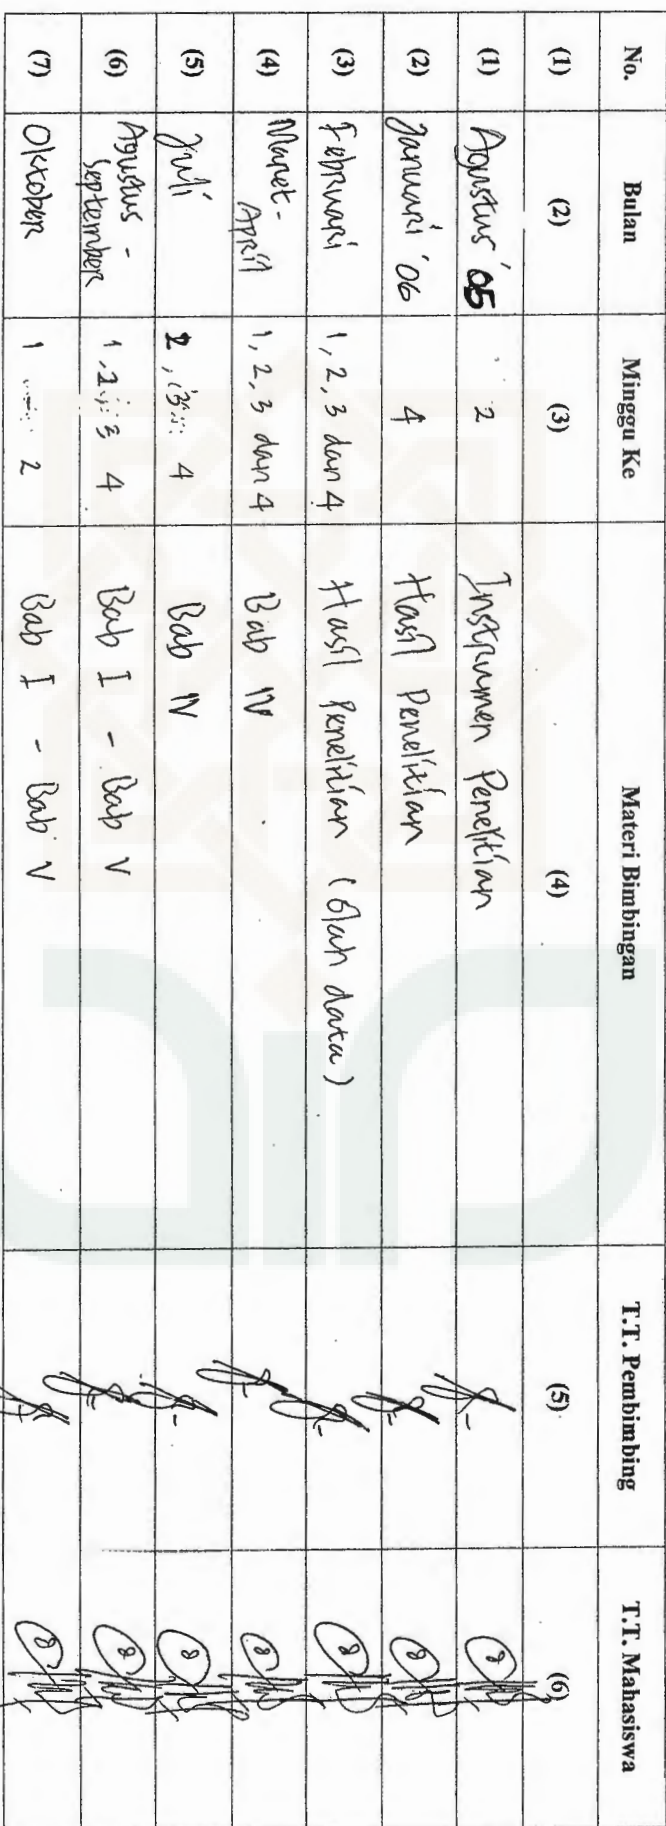 No. Bulan Minggu Ke Materi Bimbingan T.T. Pembimbing T.T. Mahasiswa
(1) (2) (3) (4) (5) (6)
(1) Agustus '05 2 Instrumen Penelitian
(2) Januari '06 4 Hasil Penelitian
(3) Februari 1, 2, 3 dan 4 Hasil Penelitian (olah data)
(4) Maret- 1, 2, 3 dan 4 Bab IV
April
(5) Juli 2, 3 4 Bab IV
(6) Agustus - 1, 2 3 4 Bab I - Bab V
September
(7) Oktober 1 - 2 Bab I - Bab V